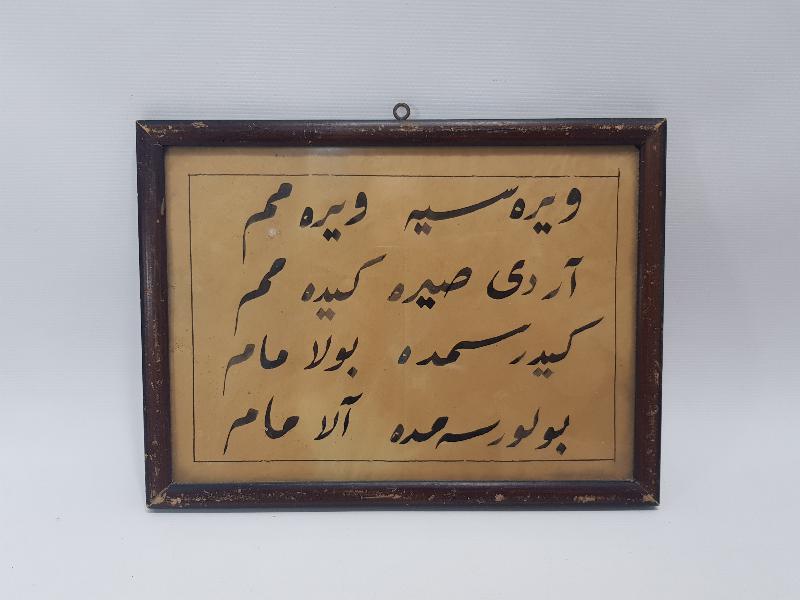 ویره‌سیه ویره‌مم
آردی صیره کیده‌مم
کیدرسمده بولا مام
بولورسه‌مده آلا مام